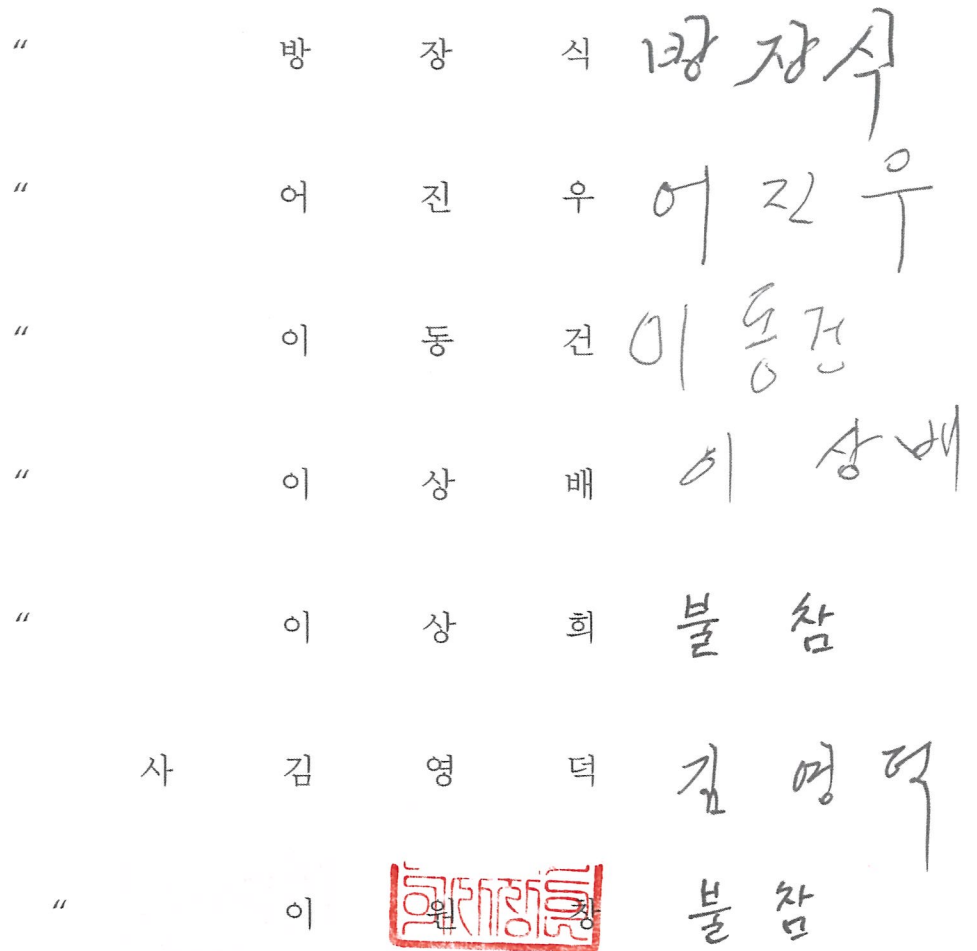 〃 방 장 식 방 장 식
〃 어 진 우 어 진 우
〃 이 동 건 이 동 건
〃 이 상 배 이 상 배
〃 이 상 희 불 참
사 김 영 덕 김 영 덕
〃 이 원 창 불 참